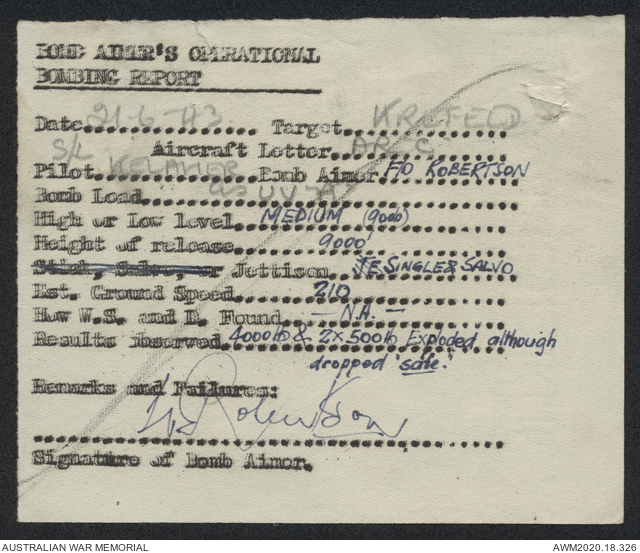 BOMB AIMER'S OPERATIONAL
BOMBING REPORT
Date 21-6-43. Target KREFELD
Aircraft Letter AR-C
Pilot S/L Bomb Aimer F/O ROBERTSON
Bomb Load
High or Low level MEDIUM (9000)
Height of release 9000'
Stick, Salvo, or Jettison JE SINGLE & SALVO
Est. Ground Speed 210
How W.S. and D. Found - N.A. -
Results observed 4000lb & 2x500lb Exploded although
dropped 'safe.'
Remarks and Failures:
Robertson
Signature of Bomb Aimer.
AUSTRALIAN WAR MEMORIAL AWM2020.18.326